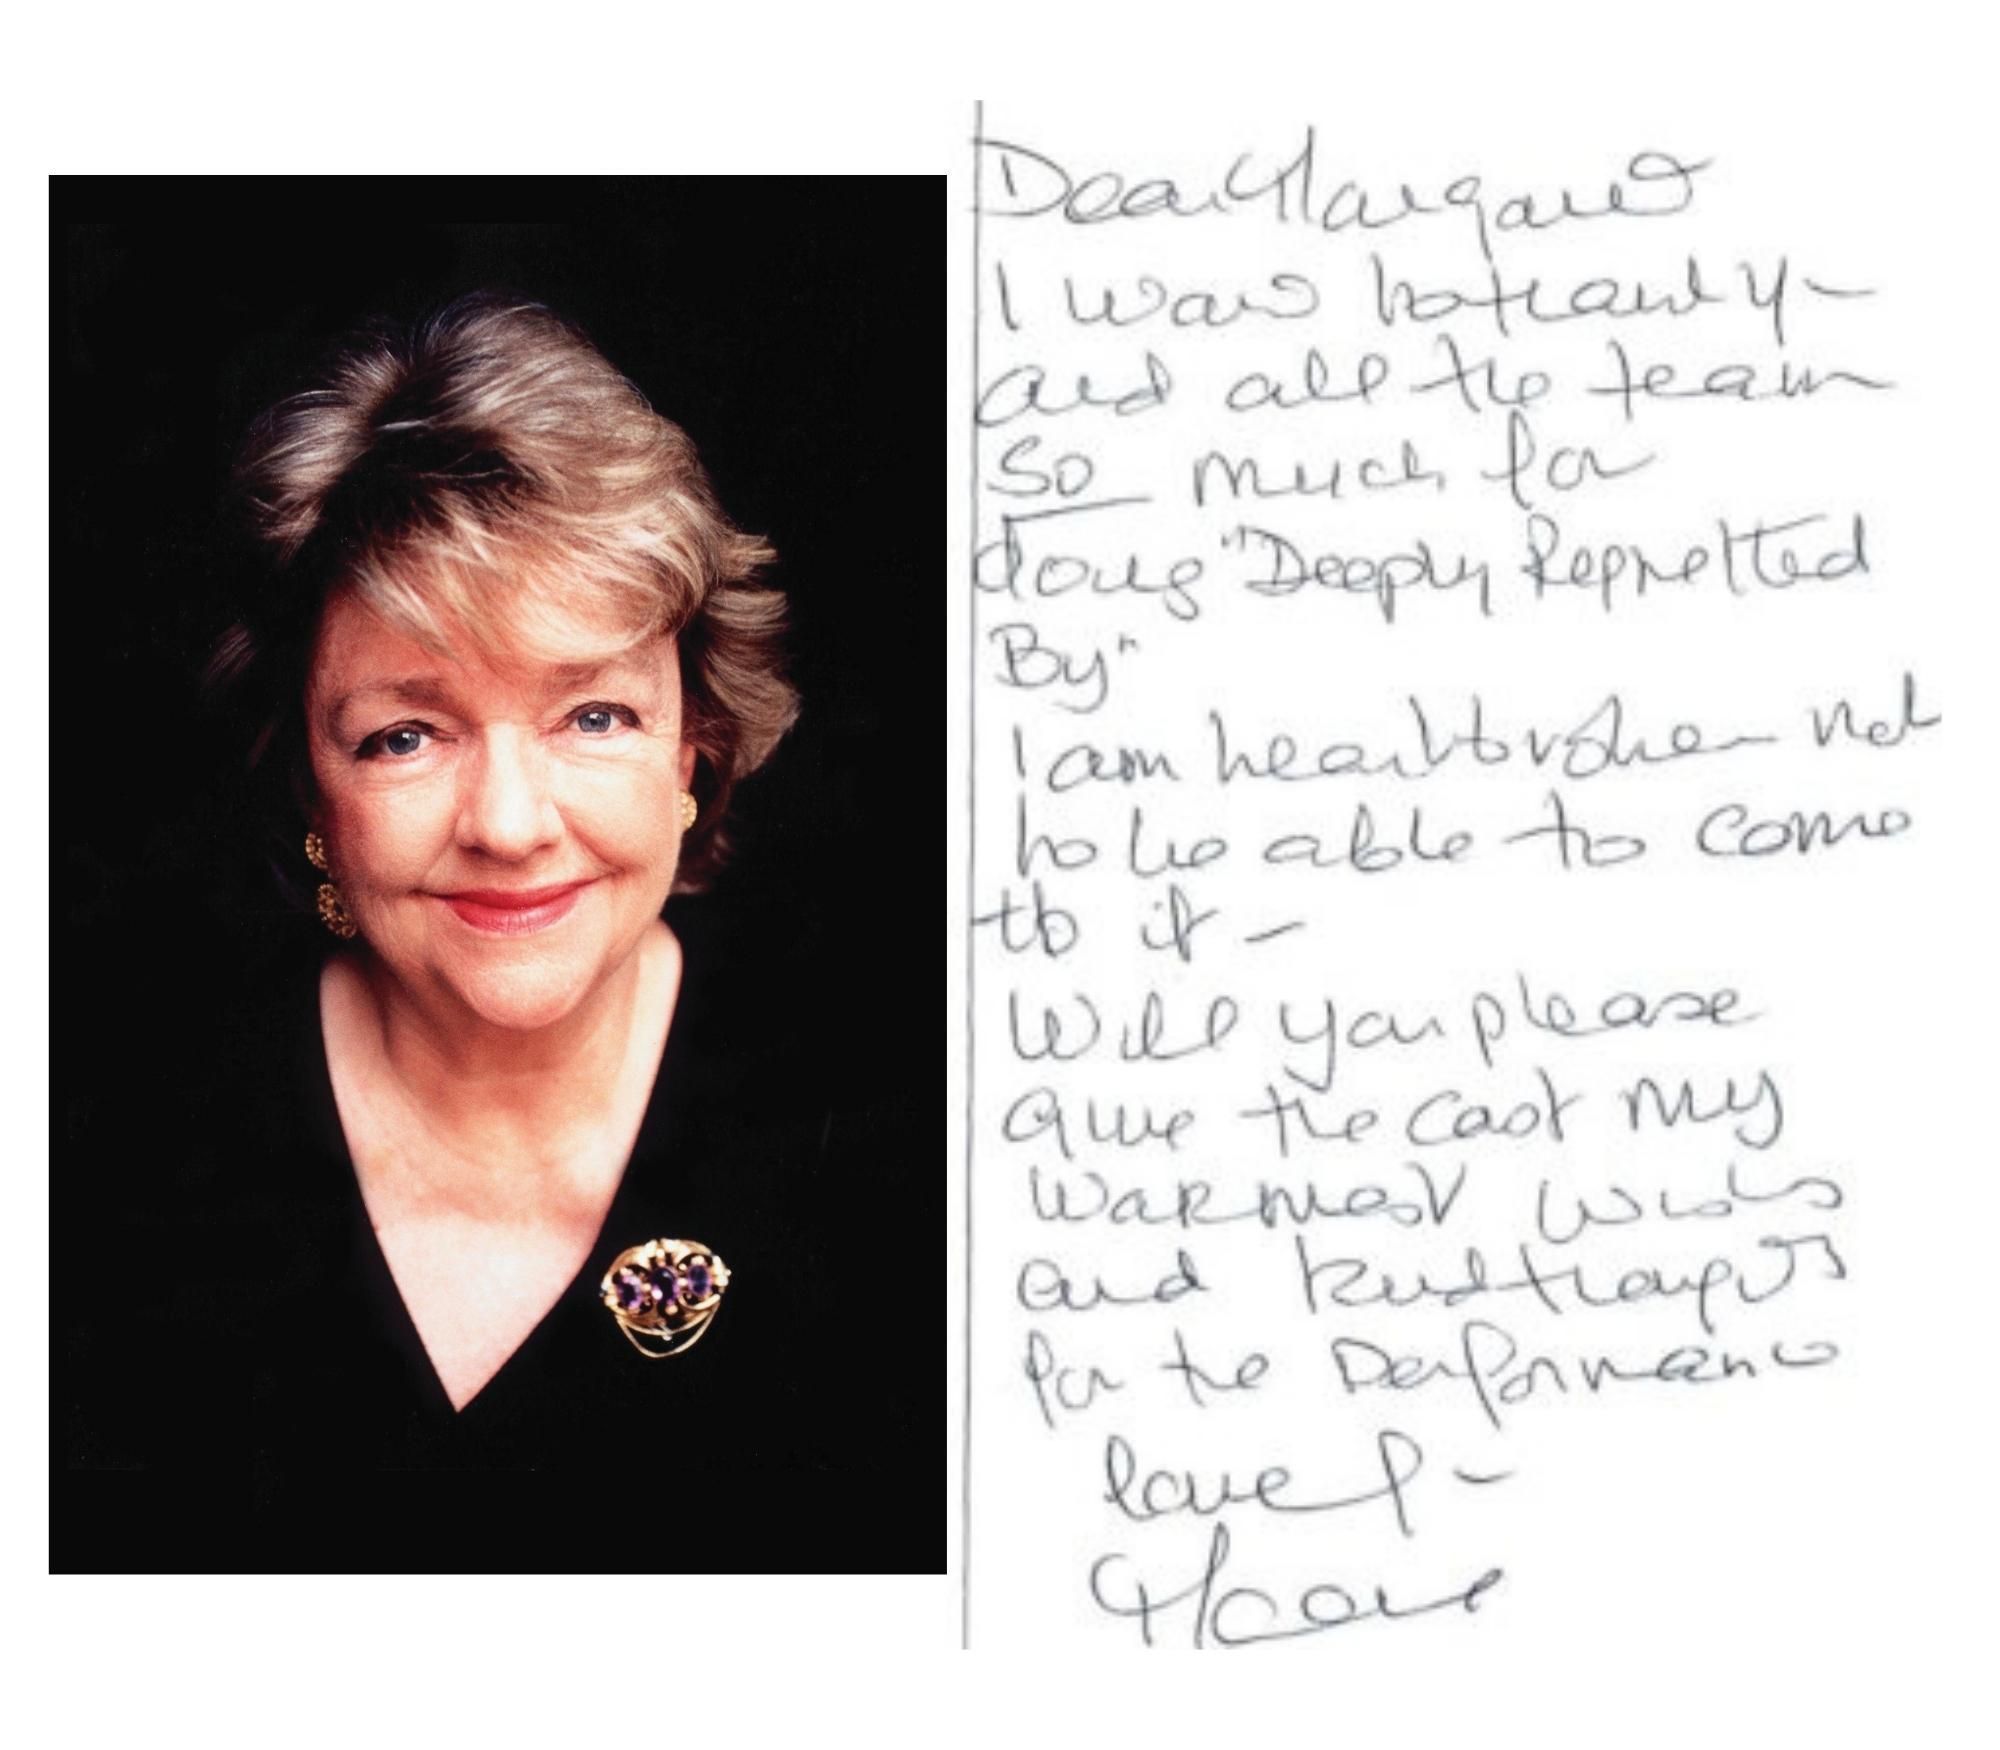 Dear Margaret
I want to thank y-
and all the team
So much for
doing "Deeply Regretted
By"
I am heartbroken not
to be able to come
to it -
Will you please
give the cast my
warmest wishes
and kind thoughts
for the performance
love
Maeve